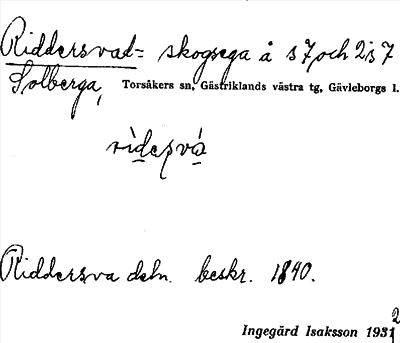 Riddersvad= skogsega å s 7 och 2 i s 7
Solberga, Torsåkers sn, Gästriklands västra tg, Gävleborgs l.
rìdesvá
Riddersva deln. beskr. 1840.
2
Ingegärd Isaksson 1931